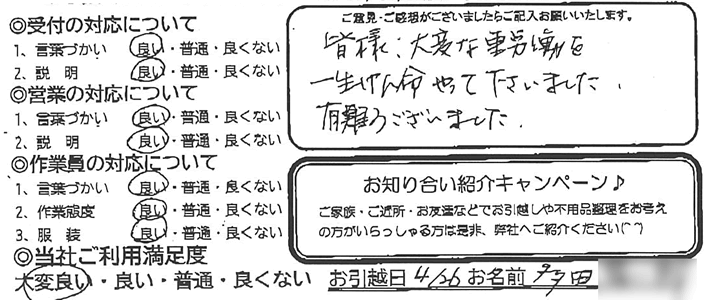 ◎受付の対応について
1、言葉づかい 良い・普通・良くない
2、説 明 良い・普通・良くない
◎営業の対応について
1、言葉づかい 良い・普通・良くない
2、説 明 良い・普通・良くない
◎作業員の対応について
1、言葉づかい 良い・普通・良くない
2、作業態度 良い・普通・良くない
3、服 装 良い・普通・良くない
◎当社ご利用満足度
大変良い・良い・普通・良くない
ご意見・ご感想がございましたらご記入お願いいたします。
皆様、大変な重労働を
一生けん命やって下さいました、
有難うございました.
お知り合い紹介キャンペーン♪
ご家族・ご近所・お友達などでお引越しや不用品整理をお考え
の方がいらっしゃる方は是非、弊社へご紹介ください(^^)
お引越日 4/26 お名前